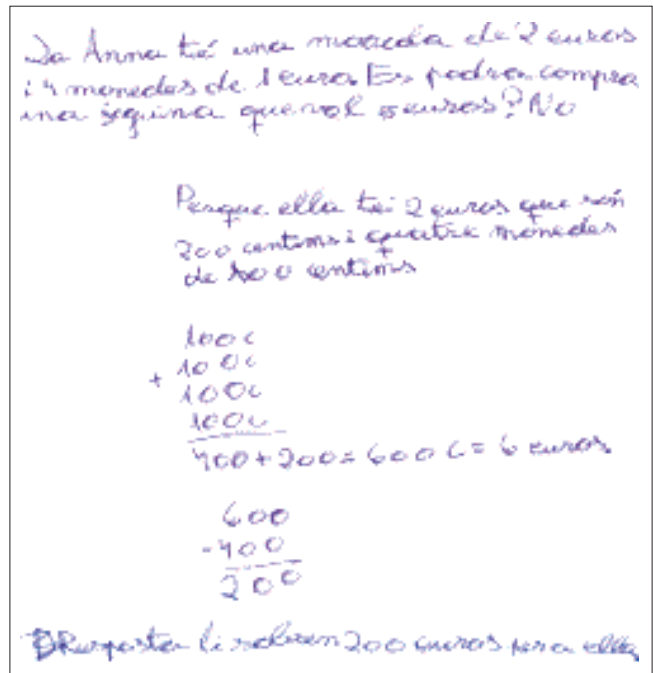 La Anna té una moneda de 2 euros
i 4 monedes de 1 euro Es podra compra
una joguina que vol euros? No
Perque ella té 2 euros que són
200 centims i quatre monedes
de centims
100c
100c
+ 100c
100c
400 + 200 = 600 c = 6 euros
600
-400
200
Resposta li sobren 200 euros per a ella